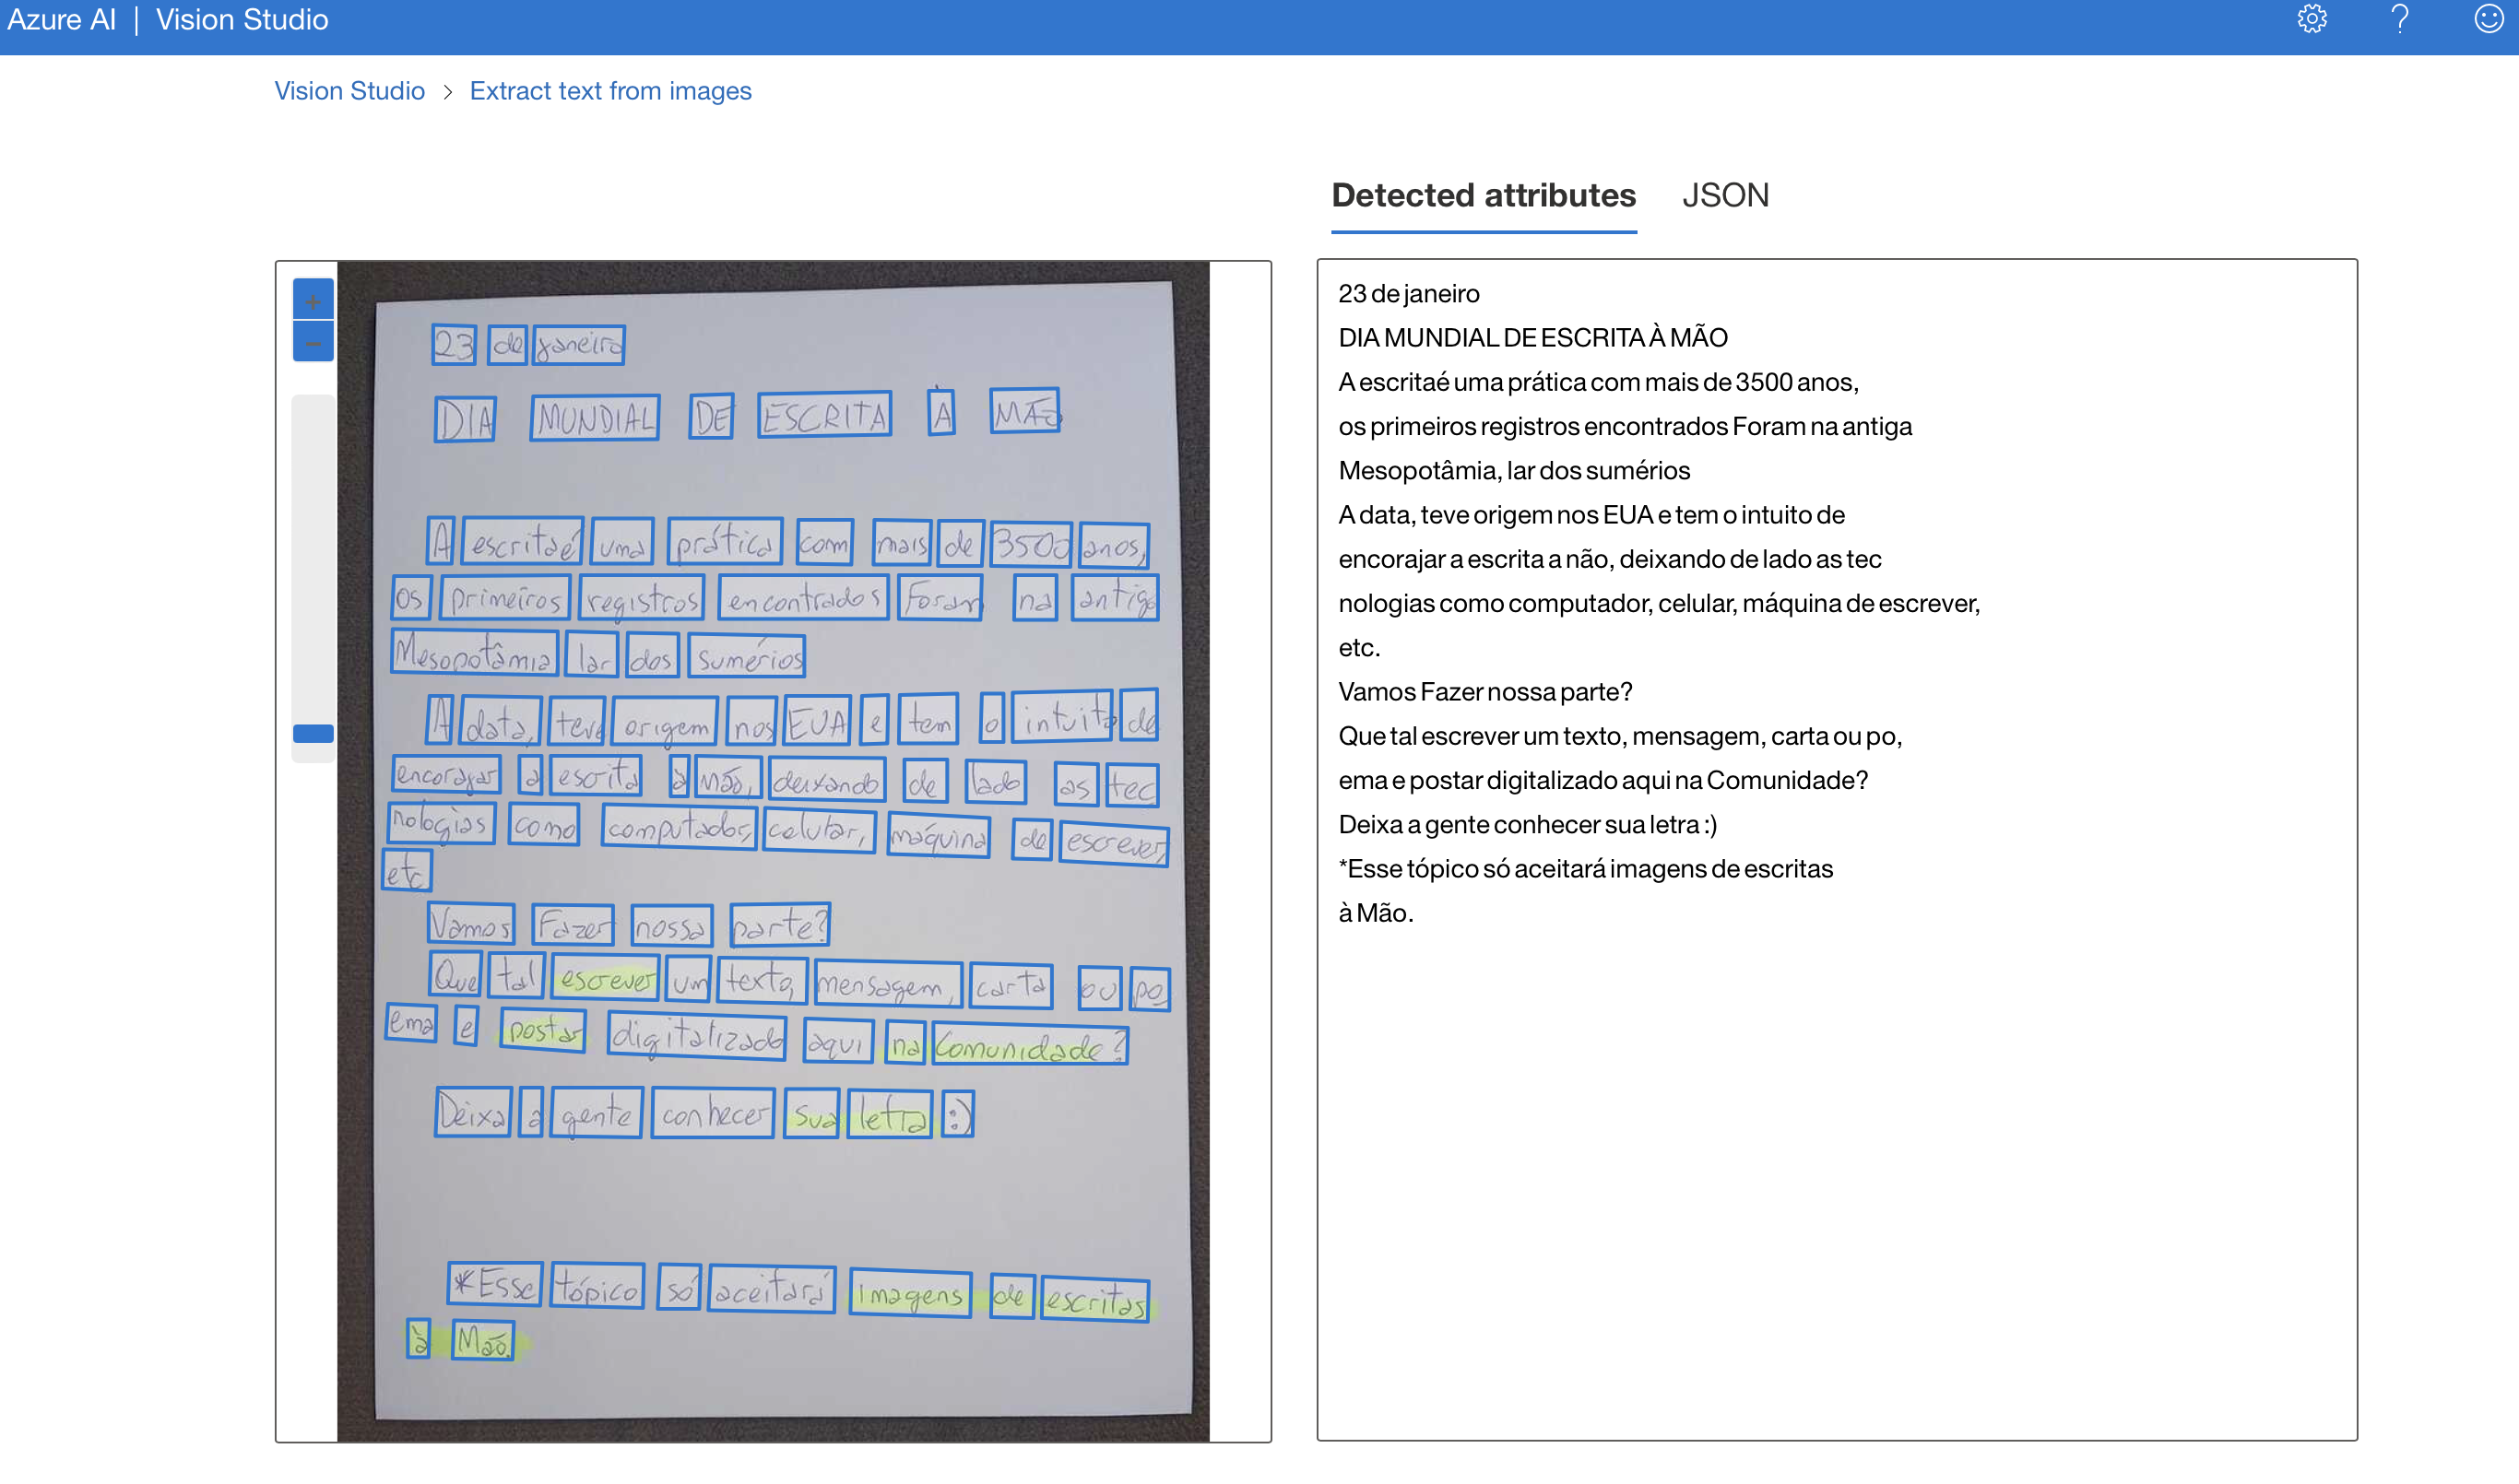 Azure AI | Vision Studio
Vision Studio > Extract text from images
Detected attributes JSON
23 de janeiro
DIA MUNDIAL DE ESCRITA À MÃO
A escrita é uma prática com mais de 3500 anos,
os primeiros registros encontrados Foram na antiga
Mesopotâmia lar dos sumérios
A data, teve origem nos EUA e tem o intuito de
encorajar a escrita à mão, deixando de lado as tec
nologias como computador, celular, máquina de escrever,
etc
Vamos Fazer nossa parte?
Que tal escrever um texto, mensagem, carta ou po
ema e postar digitalizado aqui na Comunidade?
Deixa a gente conhecer sua letra :)
*Esse tópico só aceitará imagens de escritas
à Mão.
23 de janeiro
DIA MUNDIAL DE ESCRITA À MÃO
A escritaé uma prática com mais de 3500 anos,
os primeiros registros encontrados Foram na antiga
Mesopotâmia, lar dos sumérios
A data, teve origem nos EUA e tem o intuito de
encorajar a escrita a não, deixando de lado as tec
nologias como computador, celular, máquina de escrever,
etc.
Vamos Fazer nossa parte?
Que tal escrever um texto, mensagem, carta ou po,
ema e postar digitalizado aqui na Comunidade?
Deixa a gente conhecer sua letra :)
*Esse tópico só aceitará imagens de escritas
à Mão.